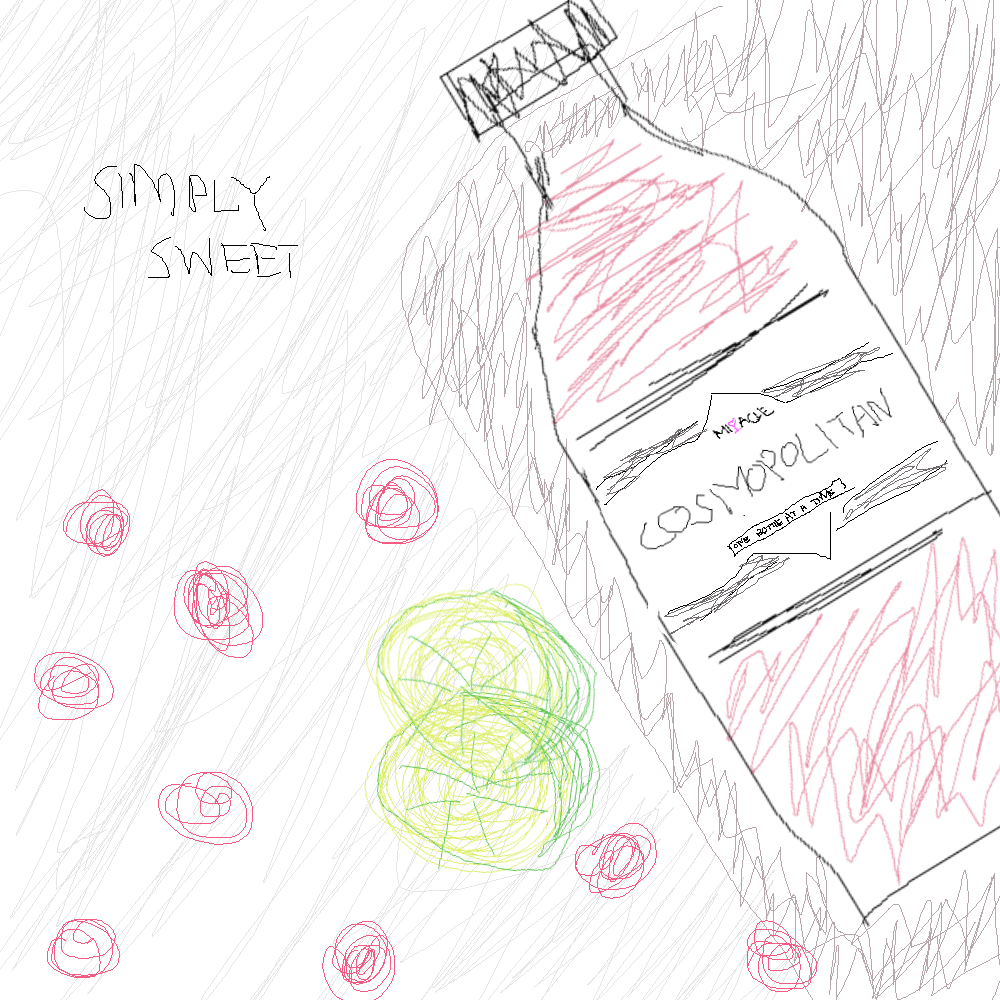 SIMPLY
SWEET
MIXACLE
COSMOPOLITAN
ONE BOTTLE AT A TIME